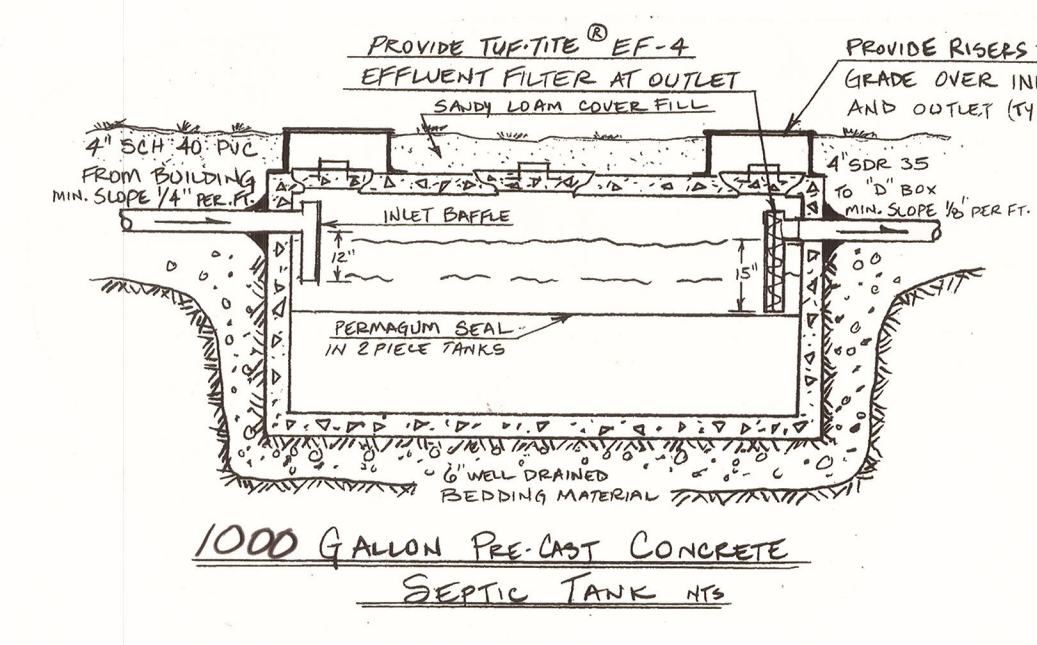 PROVIDE TUF-TITE® EF-4
EFFLUENT FILTER AT OUTLET
SANDY LOAM COVER FILL
PROVIDE RISERS
GRADE OVER
AND OUTLET
4" SCH 40 PVC
FROM BUILDING
MIN. SLOPE 1/4" PER. FT.
4" SDR 35
TO "D" BOX
MIN. SLOPE 1/8" PER FT.
INLET BAFFLE
12"
15"
PERMAGUM SEAL
IN 2 PIECE TANKS
6" WELL DRAINED
BEDDING MATERIAL
1000 GALLON PRE-CAST CONCRETE
SEPTIC TANK NTS